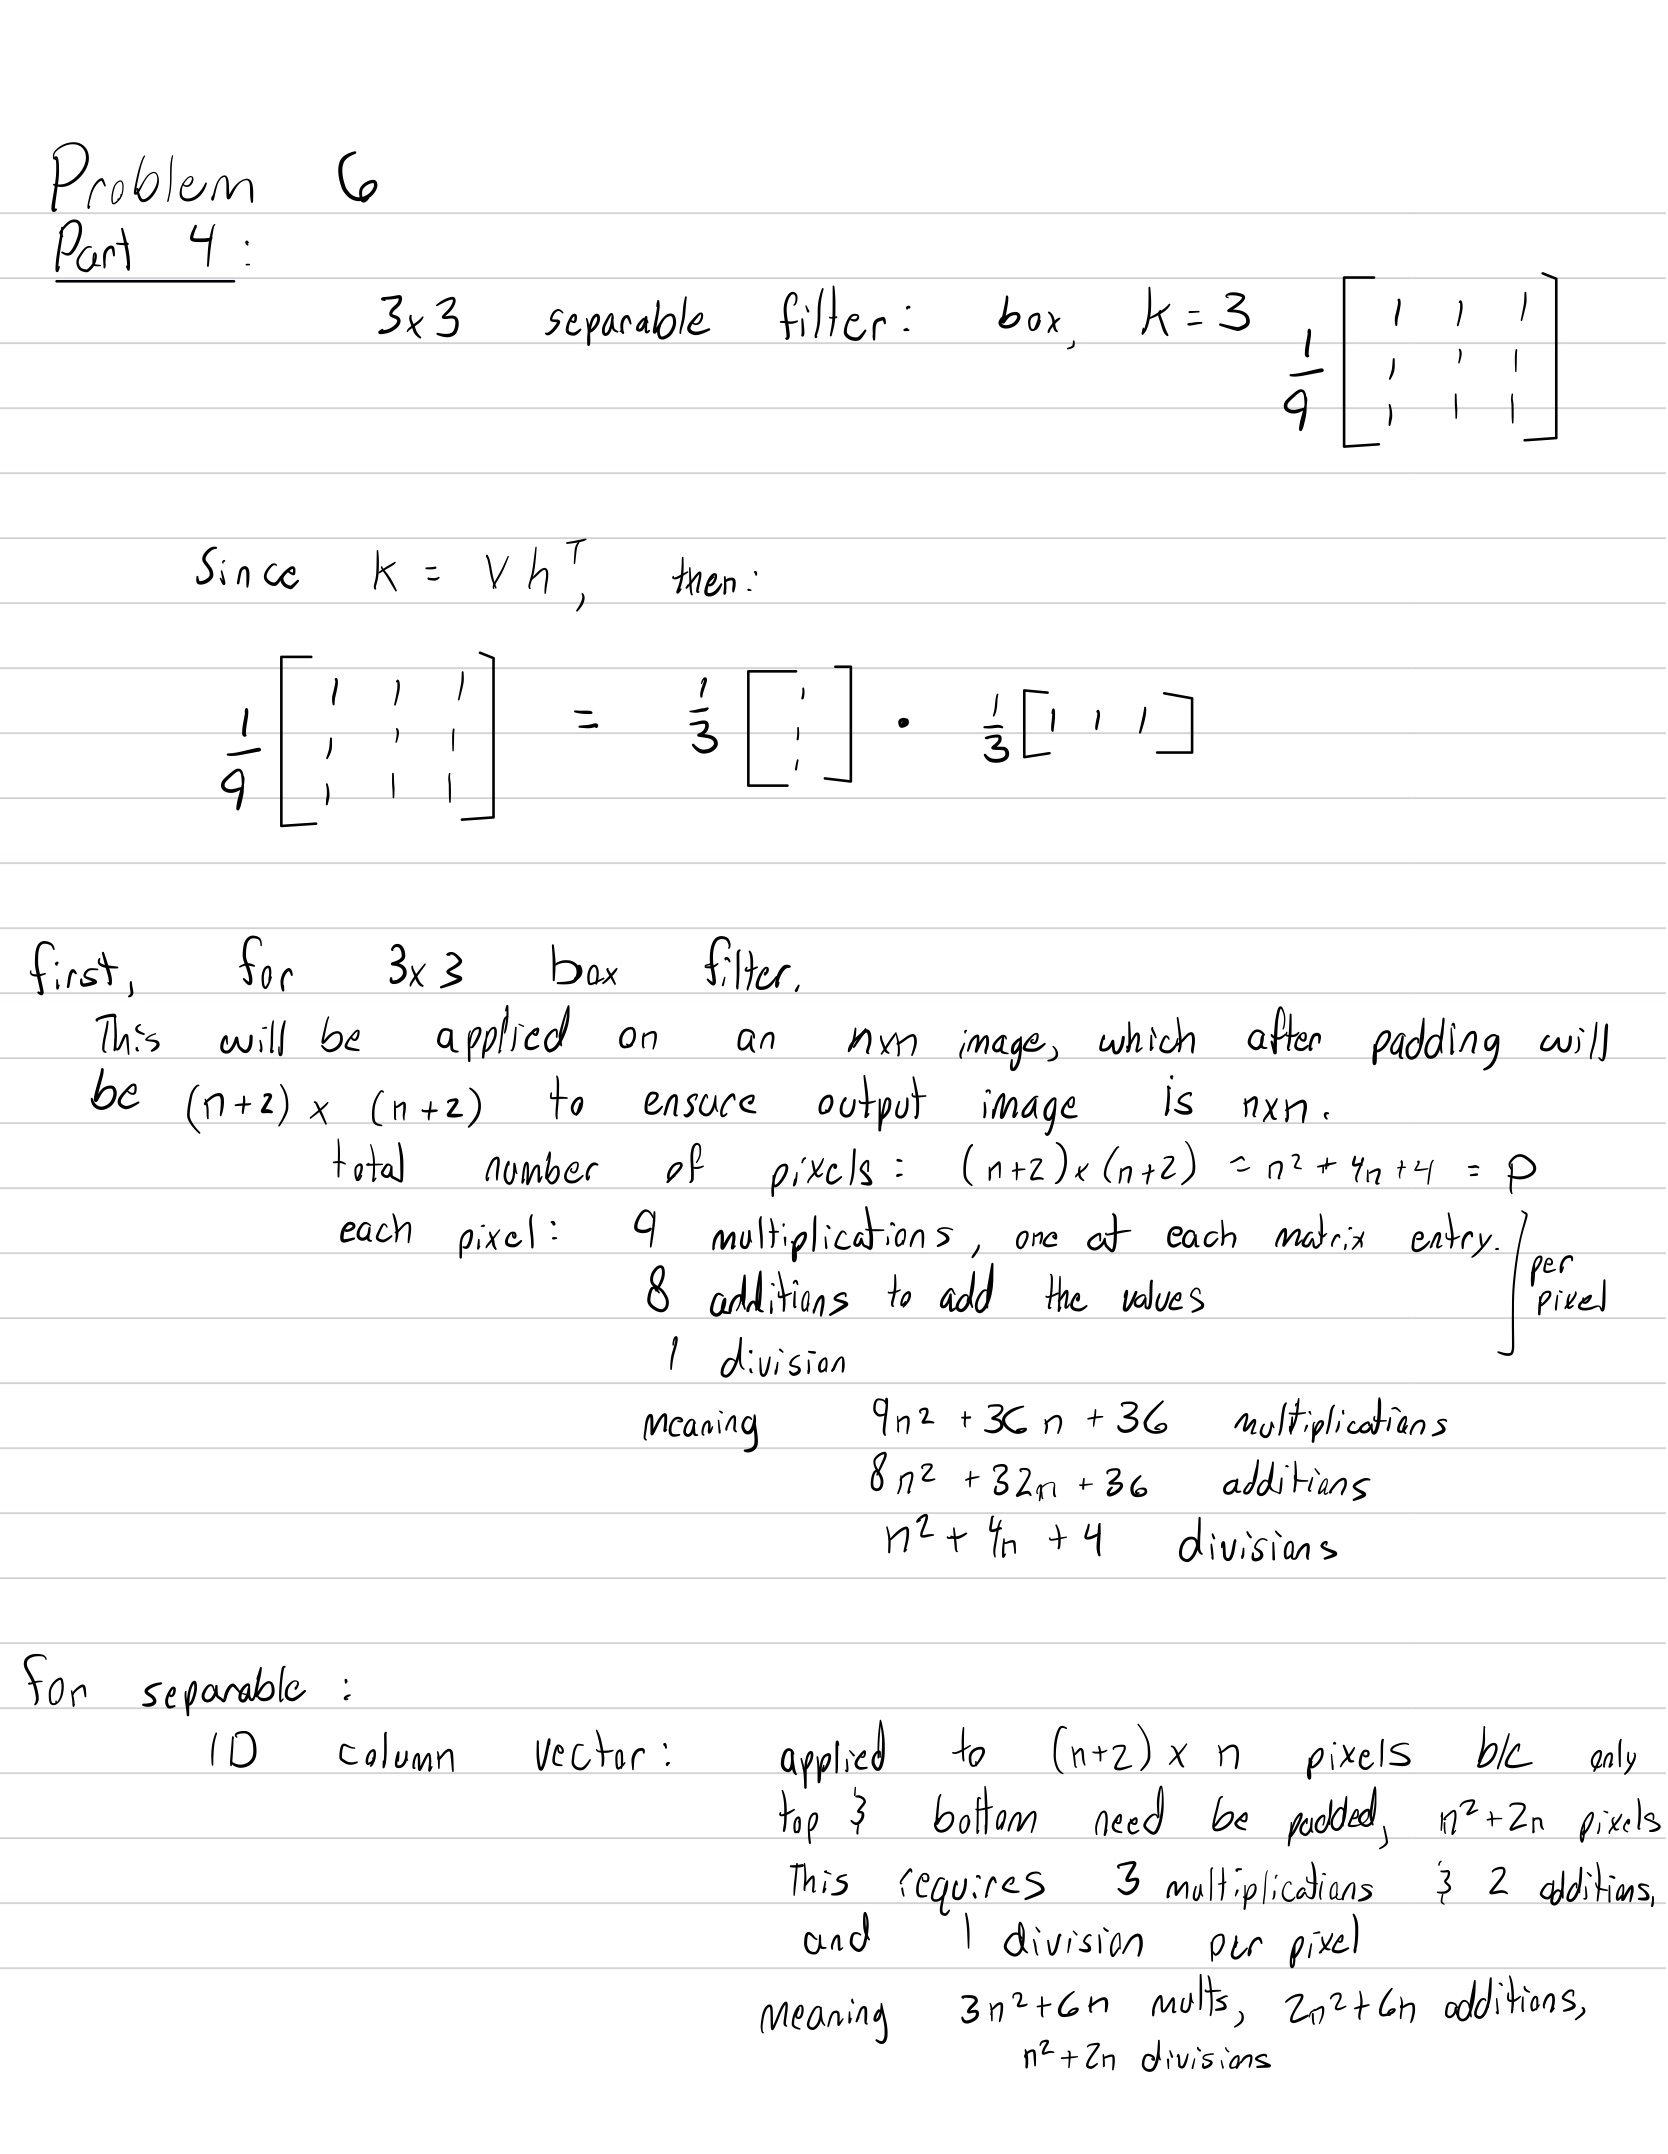 Problem 6
Part 4:
3x3 separable filter: box, k = 3 1/9 [1 1 1; 1 1 1; 1 1 1]
Since k = v hᵀ, then:
1/9 [1 1 1; 1 1 1; 1 1 1] = 1/3 [1; 1; 1] · 1/3 [1 1 1]
first, for 3x3 box filter.
This will be applied on an nxn image, which after padding will
be (n+2) x (n+2) to ensure output image is nxn.
total number of pixels: (n+2)x(n+2) = n² + 4n + 4 = p
each pixel: 9 multiplications, one at each matrix entry.
8 additions to add the values
1 division
per pixel
meaning 9n² + 36n + 36 multiplications
8n² + 32n + 36 additions
n² + 4n + 4 divisions
for separable:
1D column vector: applied to (n+2) x n pixels b/c only
top & bottom need be padded, n²+2n pixels
This requires 3 multiplications & 2 additions,
and 1 division per pixel
meaning 3n²+6n mults, 2n²+6n additions,
n²+2n divisions